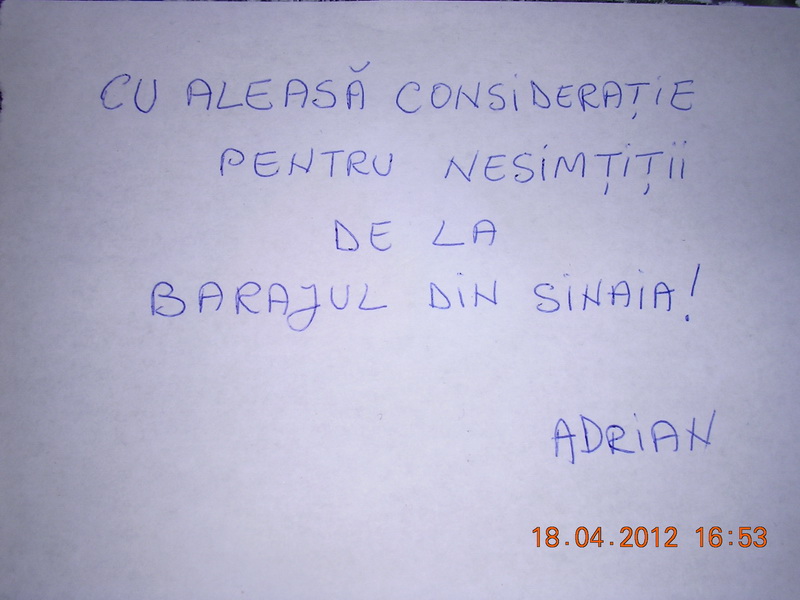 CU ALEASĂ CONSIDERAȚIE
PENTRU NESIMȚIȚII
DE LA
BARAJUL DIN SINAIA!
ADRIAN
18.04.2012 16:53